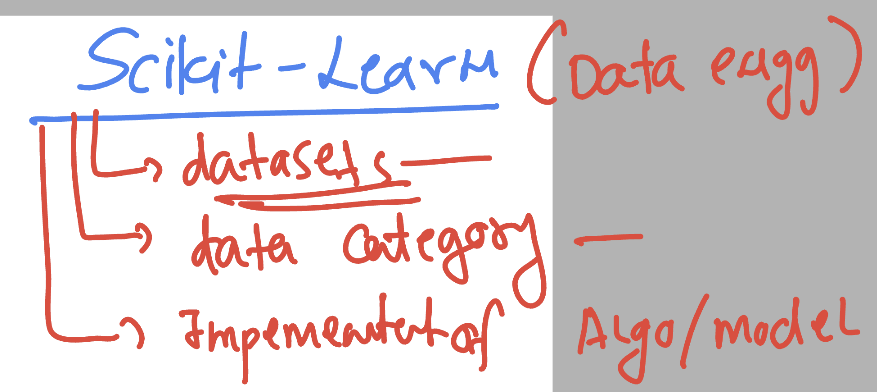 Scikit-Learn (Data engg)
datasets
data category
Impementat of Algo/model